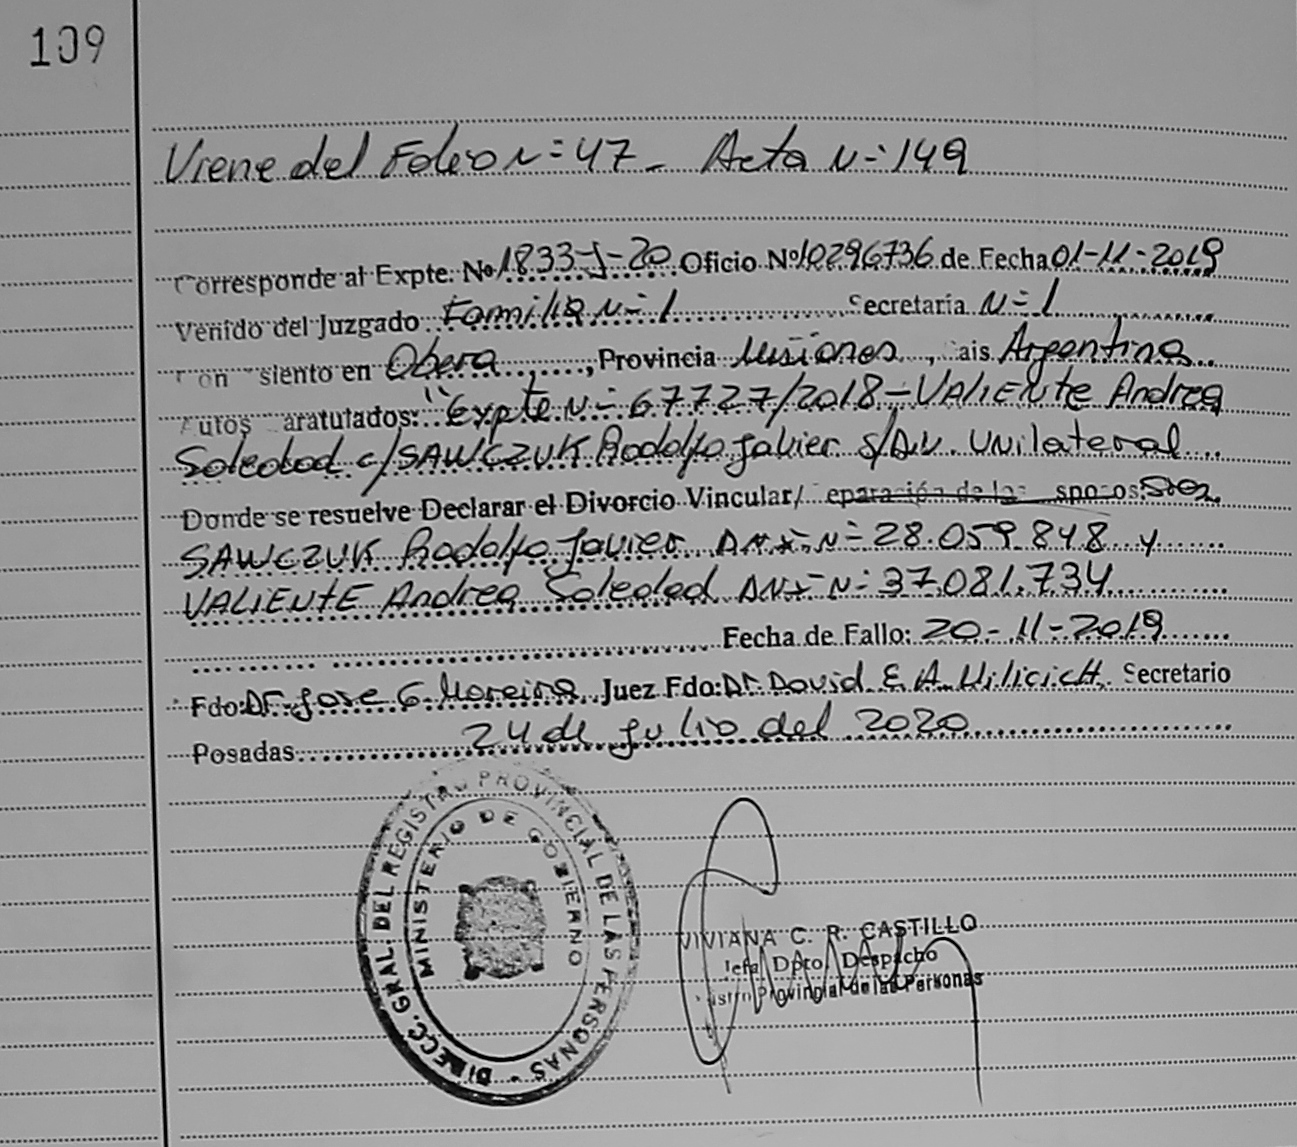 109
Viene del Folio N= 47 - Acta N=149
Corresponde al Expte. Nº 1833-J-20 Oficio Nº 10296736 de Fecha 01-11-2019
Venido del Juzgado Familia N=1 Secretaría N=1
Con siento en Obera, Provincia Misiones, ais Argentina
utos aratulados: "Expte N= 67727/2018-VALIENTE Andrea
Soledad c/SAWCZUK Rodolfo Javier S/Div. Unilateral
Donde se resuelve Declarar el Divorcio Vincular/ eparación de los sposos
SAWCZUK Rodolfo Javier DNI N=28.059.848 y
VALIENTE Andrea Soledad DNI N=37.081.734
Fecha de Fallo: 20-11-2019
Fdo: Dr. Jose G. Moreira Juez Fdo: Dr. David E. A. Milicich Secretario
Posadas 24 de Julio del 2020
DIRECC. GRAL. DEL REGISTRO PROVINCIAL DE LAS PERSONAS
MINISTERIO DE GOBIERNO
VIVIANA C. R. CASTILLO
Jefa Dpto Despacho
istro Provincial de las Personas